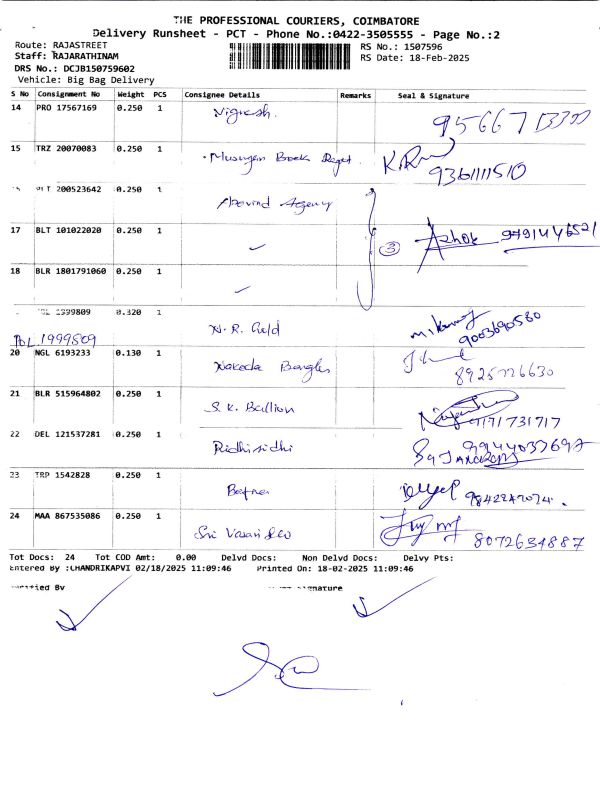 THE PROFESSIONAL COURIERS, COIMBATORE
Delivery Runsheet - PCT - Phone No.:0422-3505555 - Page No.:2
Route: RAJASTREET
Staff: RAJARATHINAM
DRS No.: DCJB150759602
Vehicle: Big Bag Delivery
RS No.: 1507596
RS Date: 18-Feb-2025
S No Consignment No Weight PCS Consignee Details Remarks Seal & Signature
14 PRO 17567169 0.250 1 Vignesh.
15 TRZ 20070083 0.250 1 9361111510
200523642 0.250 1 Aravind Agency
17 BLT 101022020 0.250 1 ✓ 3 Ashok 9791446521
18 BLR 1801791060 0.250 1 ✓
1999809 0.320 1 N.R. Gold 9003690580
PDL 1999809
20 NGL 6193233 0.130 1 Nakoda Bangles 8925226630
21 BLR 515964802 0.250 1 S.K. Bullion 9171731717
22 DEL 121537281 0.250 1 Ridhisidhi
23 TRP 1542828 0.250 1 9842242074.
24 MAA 867535086 0.250 1 Sri Vasan 8072634887
Tot Docs: 24 Tot COD Amt: 0.00 Delvd Docs: Non Delvd Docs: Delvy Pts:
Entered By :CHANDRIKAPVI 02/18/2025 11:09:46 Printed On: 18-02-2025 11:09:46